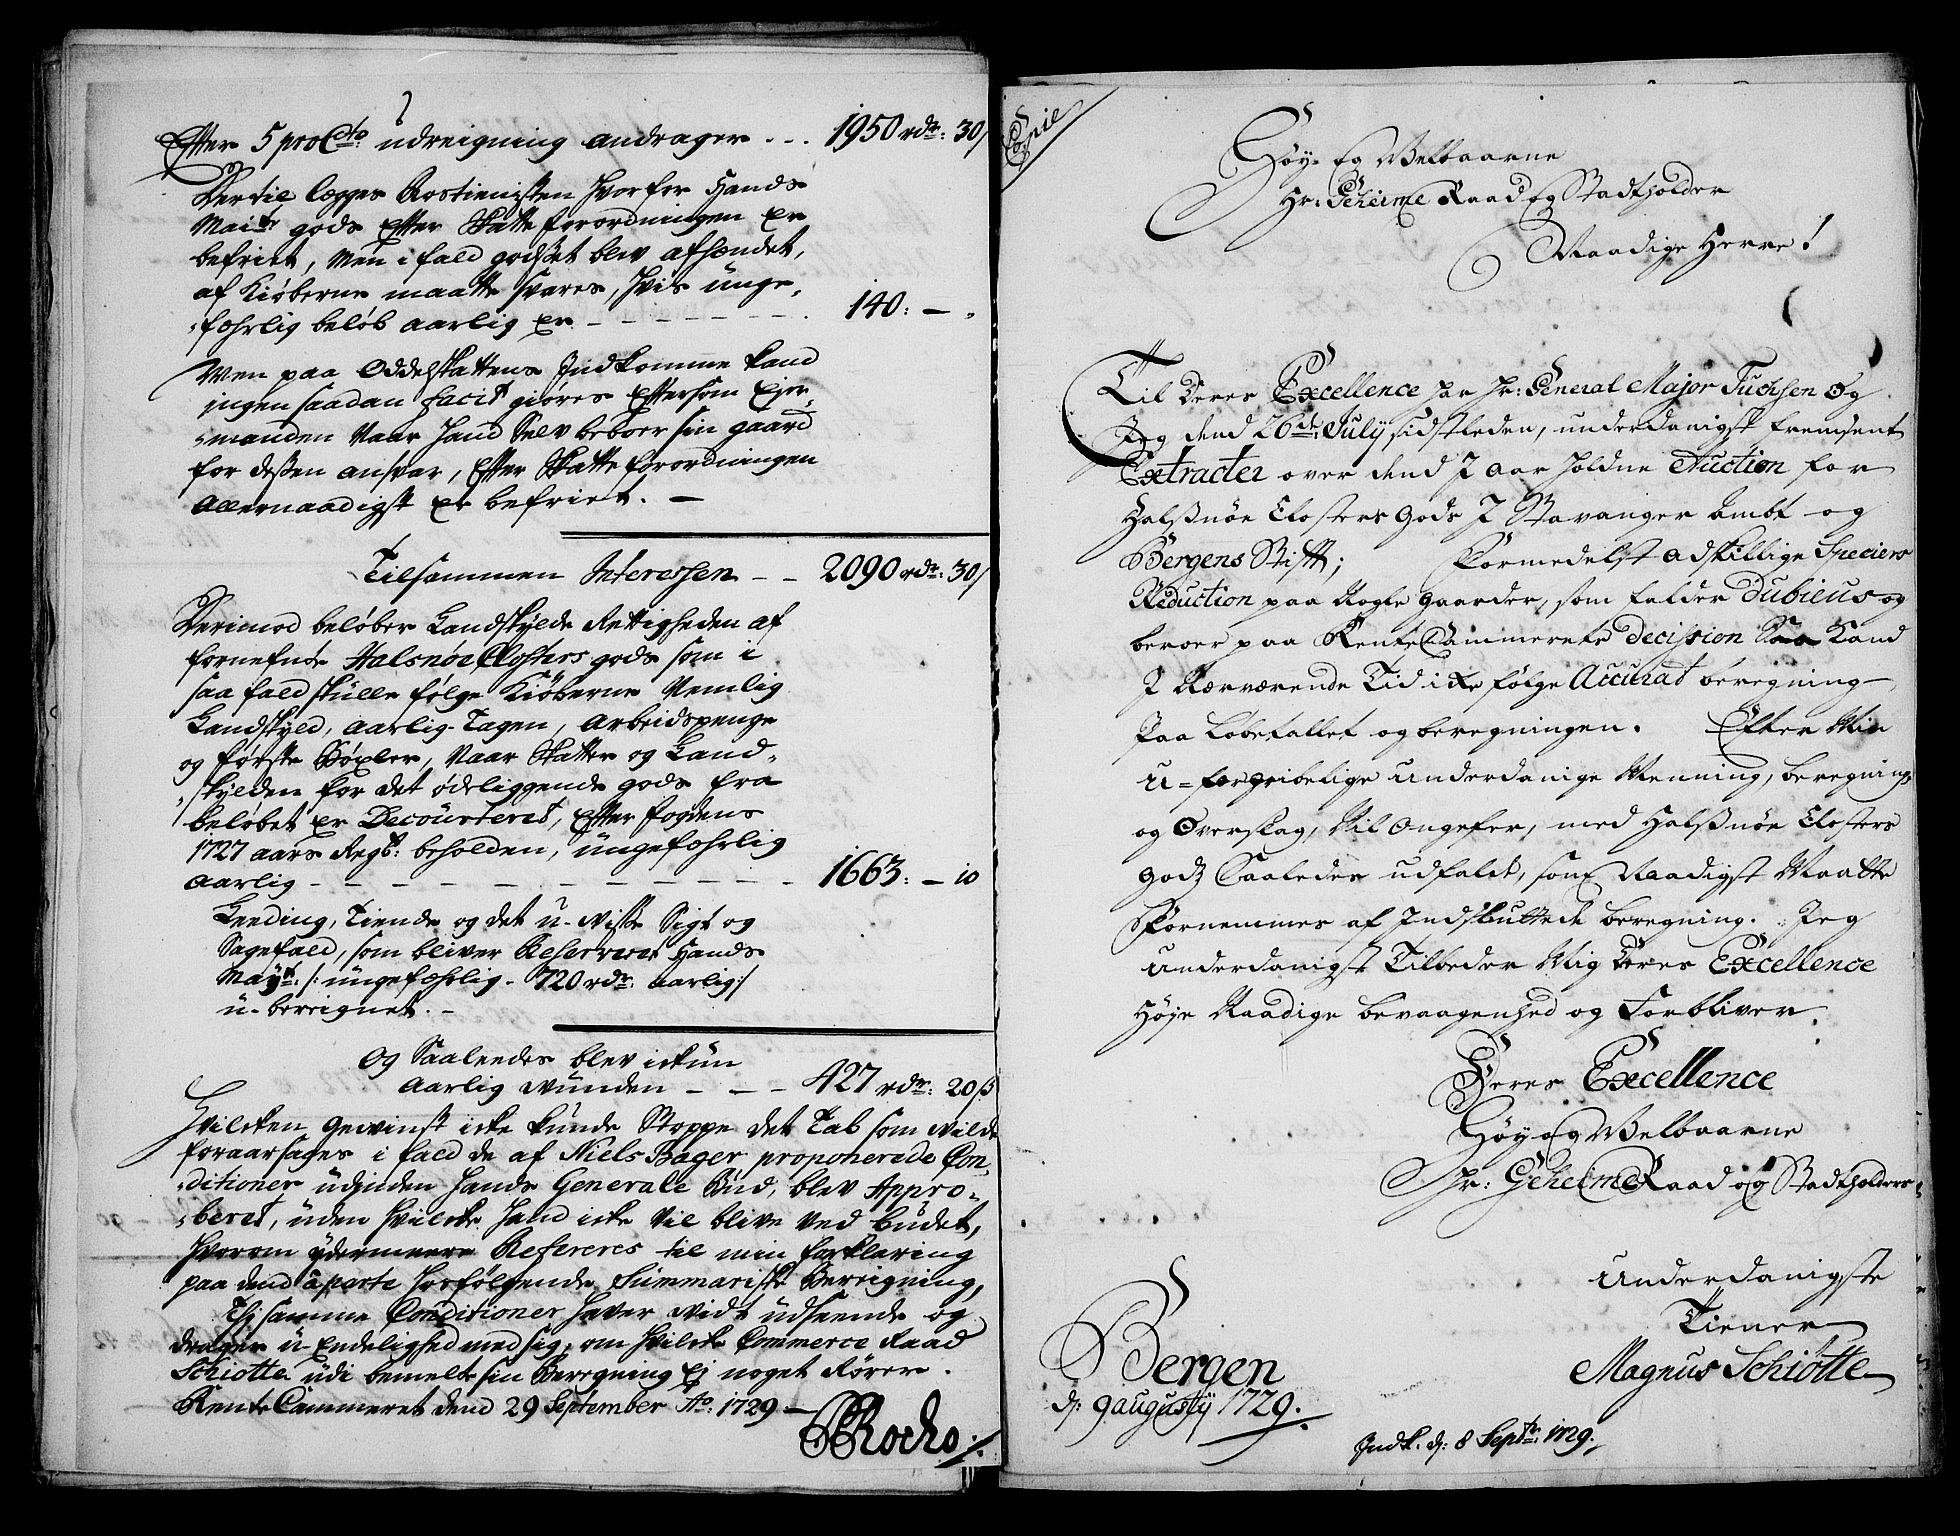 Efter 5 proCto: udreigning andrager . . . 1950 rdr: 30/
Dertil legges Rostienisten hvorfor Hands
Maits gods Efter Skatte forordningen er
befriet, Men i fald godset blev afhendet,
af Kiøberne maatte svares, hvis unge-
fehrlig beløb aarlig er - - - - - 140: —
Men paa Oddelskattens Indkomme kand
ingen saadan facit giøres Eftersom Eier-
manden Naar hand Selv beboer sin gaard
for dessen ansvar, Efter Skatte forordningen
Allernaadigst er befriet. —
Tilsammen Interessen - - 2090 rdr: 30/
Derimod beløber Landskylds Rettigheden af
fornefnte Halsnøe Closters gods som i
saa fald skulle følge Kiøberne Nemlig
Landskyld, aarlig Tagen, Arbeidspenge
og første Bøxler, Naar Skatter og Land-
skylden for det ødeliggende gods fra
beløbet er Decourteret, Efter fogdens
1727 aars Regsk: beholden, ungefehrlig
aarlig - - - - - - - - - 1663: — 10
Leeding, Tiende og det u-visse Sigt og
Sagefald, som bliver Reserveret Hands
Mayts: /: ungefehrlig - 720 rdr: aarlig :/
u-bereignet. -
Og Saaleedes blev ickun
aarlig vunden - - - 427 rdr: 20 ß
Hvilcken gevinst icke kunde Stoppe det Tab som vilde
foraarsages i fald de af Niels Bager proponerede Con-
ditioner udinden hands Generale Bud, blev Appro-
beret, uden hvilcke hand icke vil blive ved budet,
hvorom ydermeere Refereres til min forklaring
paa dend aparte hosfølgende Summariske Bereigning,
Thj samme Conditioner haver vidt udseende og
drager u-Endelighed med sig, om hvilcke Commerce Raad
Schiøtte udi bemelte sin Beregning Ej noget Rører.
Rente Cammeret dend 29 September Ao: 1729 —
Copie
Høy- og Welbaarne
Hr: Geheime Raad og Stadtholder
Naadige Herre!
Til Deres Excellence har Hr: General Major Fuchsen og
Jeg dend 26de July sidstleden, underdanigst fremsent
Extracter over dend J aar holdne Auction for
Halsnøe Closters Gods J Stavanger Ambt og
Bergens Stift; Formedelst adskillige Speciers
Reduction paa Nogle gaarder, som falder dubieus og
beroer paa RenteCammerets decission Saa Kand
J Nærværende Tid icke følge Accurat beregning
Paa Løbet allet og beregningen. Efter Min
u-forgribelige underdanige Meening, beregning
og Overslag, Vil ongefer, med Halsnøe Closters
godz Saaledes udfaldt, som Naadigst Maatte
Fornemmes af Indsluttede beregning. Jeg
underdanigst Tilbeder Mig Deres Excellence
Høje Naadige bevaagenhed og Forbliver.
Deres Excellence
Høy og Welbaarne
Hr: Geheime Raad og Stadtholders
underdanigste
Tiener
Magnus Schiøtte
Bergen
d: 9 augusty 1729.
Indk. d: 8 Septr: 1729.